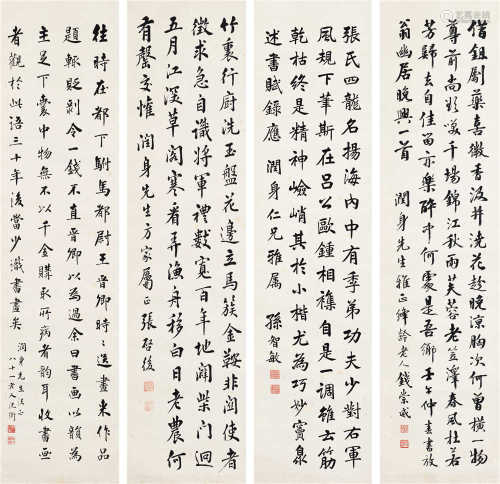 借鉏劚藥喜微香汲井澆花趁晚涼胸次何曾橫一物
尊前尚欲笑千場錦江秋雨芙蓉老笠澤春風杜若
芳歸去自佳留亦樂醉中何處是吾鄉壬午仲春書放
翁幽居晚興一首 潤身先生雅正 老人錢崇威
張氏四龍名揚海內中有季弟功夫少對右軍
風規下筆斯在呂公歐鍾相雜自是雖去筋
乾枯終是精神嶮峭其於小楷尤為巧妙竇臮
述書賦錄應 潤身仁兄雅屬 孫智敏
竹裏行廚洗玉盤花邊立馬簇金鞍非關使者
徵求急自識將軍禮數寬百年地闢柴門迥
五月江深草閣寒看弄漁舟移白日老農何
有罄交懽 潤身先生方家屬正 張啓後
往時在都下駙馬都尉王晉卿時〻送書畫來作品
題輒貶剝令一錢不直晉卿以為過余曰書畫以韻為
主足下囊中物無不以千金購取所病者韻耳收書畫
者觀於此語三十年後當少識書畫矣
潤身先生法正
八十一老人沈衛